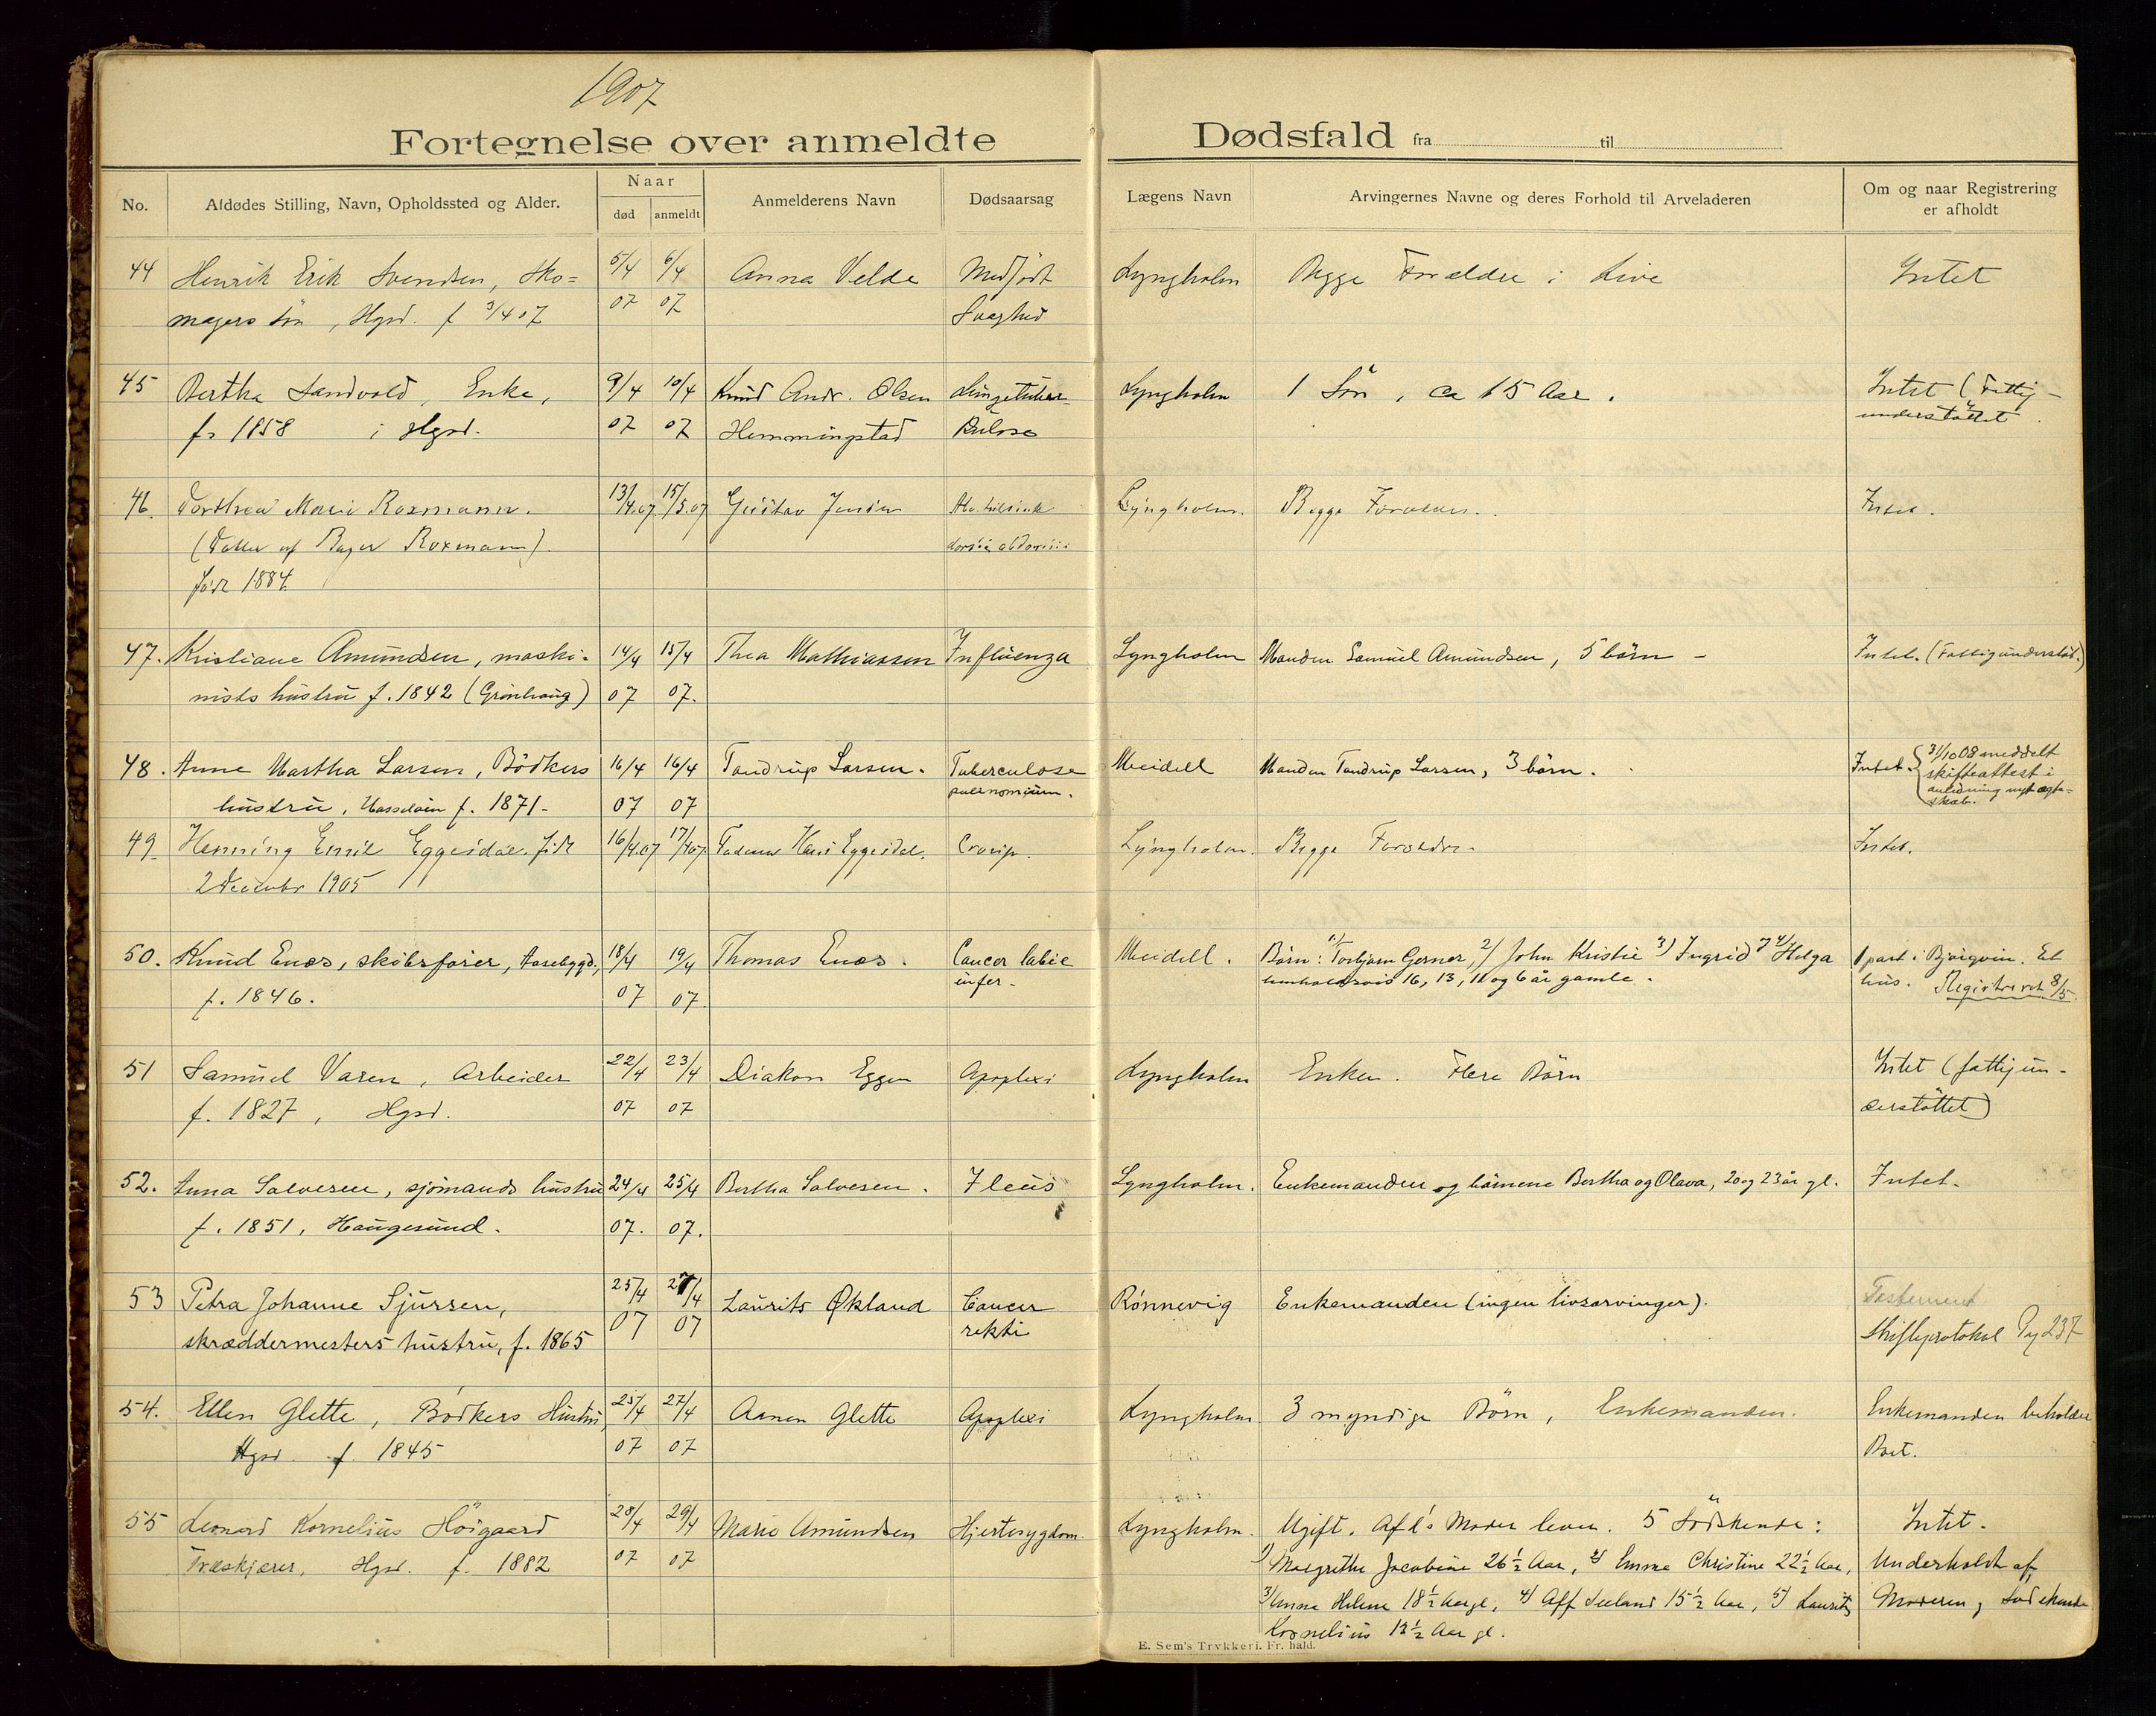 1907
Fortegnelse over anmeldte Dødsfald fra til
No. Afdødes Stilling, Navn, Opholdssted og Alder. Naar død anmeldt Anmelderens Navn Dødsaarsag Lægens Navn Arvingernes Navne og deres Forhold til Arveladeren Om og naar Registrering er afholdt
44 Henrik Erik Svendsen, sko= 5/4 6/4 Anna Velde Medfødt Lyngholm Begge Forældre i Live Intet
magers søn, Hgsd. f 3/4 07 07 07 Svaghed
45 Bertha Sandvold, Enke, 9/4 10/4 Knud Andr. Olsen Lungetuber- Lyngholm 1 Søn, ca 15 Aar. Intet (Fattig-
f. 1858 i Hgsd. 07 07 Hemmingstad kulose understøttet
46. Dorthea Marie Roxmann. 13/4.07 15/5.07 Gustav Jensen Lyngholm. Begge Forældre. Intet.
(Datter af Bager Roxmann).
født 1884.
47. Kristiane Amundsen, maski- 14/4 15/4 Thea Mathiassen Influenza Lyngholm Manden Samuel Amundsen, 5 børn - Intet. (Fattigunderstøt.)
nists hustru f. 1842 (Grønhaug) 07 07.
48. Anne Martha Larsen, Bødkers 16/4 16/4 Tandrup Larsen. Tuberculose Meidell Manden Tandrup Larsen, 3 børn. Intet. 31/10 08 meddelt
hustru, f. 1871- 07 07 skifteattest i
anledning nyt ægte-
skab.
49. Henning Emil Eggesdal. født 16/4.07 17/4.07 Eggesdal. Croup. Lyngholm. Begge Forældre. Intet.
2 December 1905
50. Knud Enæs, skibsfører, Aasebygd., 18/4 19/4 Thomas Enæs. Cancer labie Meidell. Børn: 1) Torbjørn Gerner, 2) John Kristie 3) Ingrid 4) Helga 1 part i Bjørgvin. Et
f. 1846. 07 07. infer. henholdsvis 16, 13, 11 og 6 år gamle. hus. Registreret 8/5.
51 Samuel Varen, Arbeider 22/4 23/4 Diakon Eggen Apoplexi Lyngholm Enken. Flere Børn Intet (fattigun-
f. 1827, Hgsd. 07 07 derstøttet)
52. Anna Salvesen, sjømands hustru 24/4 25/4 Bertha Salvesen. Ileus Lyngholm. Enkemanden og børnene Bertha og Olava, 20 og 23 år gl. Intet.
f. 1851, Haugesund. 07. 07.
53 Petra Johanne Sjursen, 25/4 27/4 Laurits Økland Cancer Rønnevig Enkemanden (ingen livsarvinger). Testement
skræddermesters hustru, f. 1865 07 07 rekti Skifteprotokol Pg 237
54. Ellen Glette, Bødkers Hustru, 25/4 27/4 Aanen Glette Apoplexi Lyngholm 3 myndige Børn, Enkemanden. Enkemanden beholder
Hgsd. f. 1845 07 07 Boet.
55 Leonard Kornelius Höigaard 28/4 29/4 Marie Amundsen Hjertesygdom. Lyngholm. Ugift. Afd's Moder lever. 5 Sødskende: Intet.
Træskjærer, Hgsd. f. 1882 07 07 1) Margrethe Jacobine 26½ Aar, 2) Emma Christine 22½ Aar, Underholdt af
3) Anna Helene 18½ Aar gl, 4) Alf 15½ Aar, 5) Laurits Moderen, Sødskende
Kornelius 13½ Aar gl.
E. Sem's Trykkeri. Fr. hald.